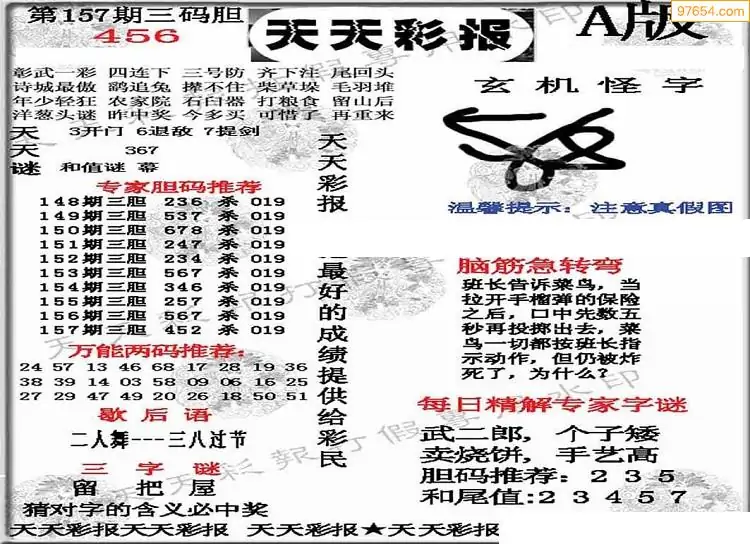 97654.com
第157期三码胆
456
天天彩报
A版
彰武一彩 四连下 三号防 齐下注 尾回头
诗城最傲 鹞追兔 撵不住 柴草垛 毛羽堆
年少轻狂 农家院 石臼器 打粮食 留山后
洋葱头谜 昨中奖 今多买 可惜了 再重来
天天谜
3开门 6退敌 7提剑
367
和值谜 幕
专家胆码推荐
148期三胆 236 杀 019
149期三胆 537 杀 019
150期三胆 678 杀 019
151期三胆 247 杀 019
152期三胆 234 杀 019
153期三胆 567 杀 019
154期三胆 346 杀 019
155期三胆 257 杀 019
156期三胆 567 杀 019
157期三胆 452 杀 019
万能两码推荐:
24 57 13 46 68 17 28 19 36
38 39 14 03 58 09 06 16 25
27 29 47 49 20 26 18 50 51
歇后语
二人舞---三八过节
三字谜
留 把 屋
猜对字的含义必中奖
天天彩报
最好的成绩提供给彩民
玄机怪字
温馨提示: 注意真假图
脑筋急转弯
班长告诉菜鸟,当
拉开手榴弹的保险
之后,口中先数五
秒再投掷出去,菜
鸟一切都按班长指
示动作,但仍被炸
死了,为什么?
每日精解专家字谜
武二郎,个子矮
卖烧饼,手艺高
胆码推荐:235
和尾值:23457
天天彩报天天彩报 天天彩报★天天彩报